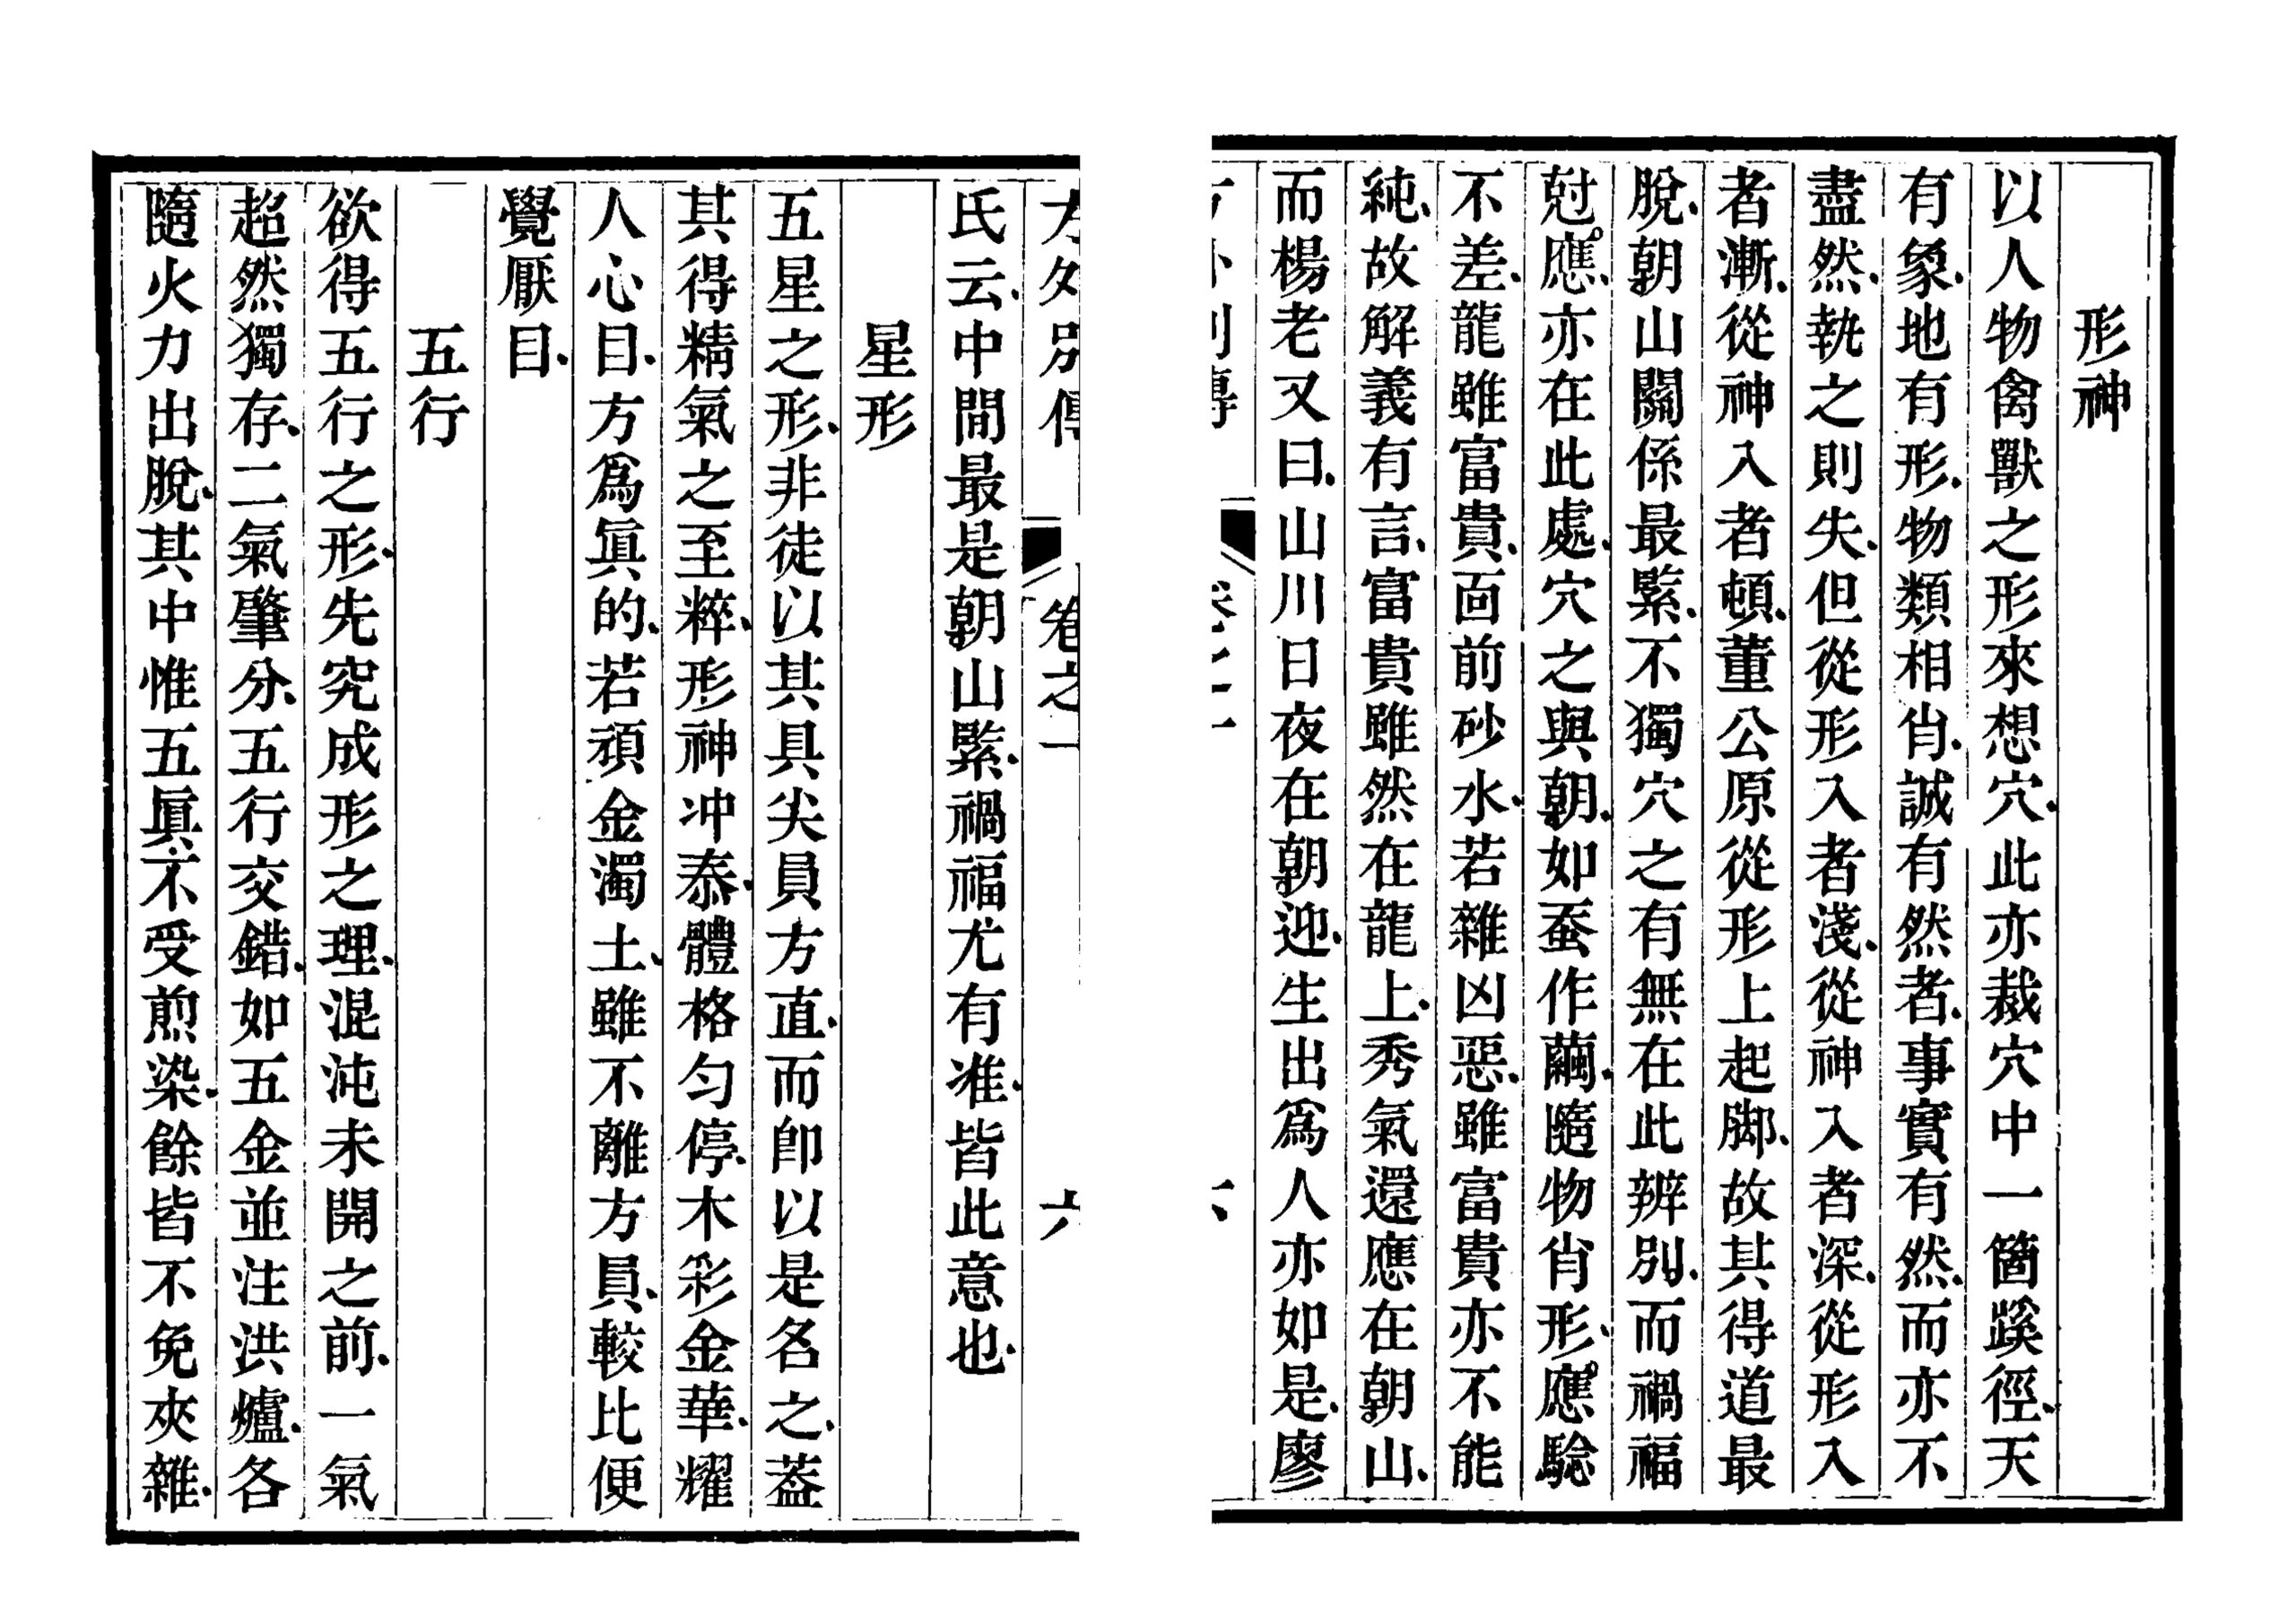 形神
以人物禽獸之形來想穴、此亦裁穴中一箇蹊徑、天
有象、地有形、物類相肖、誠有然者、事實有然、而亦不
盡然、執之則失、但從形入者淺、從神入者深、從形入
者漸、從神入者頓、董公原從形上起脚、故其得道最
脫、朝山關係最緊、不獨穴之有無在此辨別、而禍福
尅應、亦在此處、穴之與朝、如蚕作繭、隨物肖形、應驗
不差、龍雖富貴、面前砂水、若雜凶惡、雖富貴亦不能
純、故解義有言、富貴雖然在龍上、秀氣還應在朝山、
而楊老又曰、山川日夜在朝迎、生出爲人亦如是、廖
方外別傳 卷之一 六
氏云、中間最是朝山緊、禍福尤有准、皆此意也、
星形
五星之形、非徒以其具尖員方直、而卽以是名之、蓋
其得精氣之至粹、形神冲泰、體格匀停、木彩金華、耀
人心目、方爲眞的、若頑金濁土、雖不離方員、較比便
覺厭目、
五行
欲得五行之形、先究成形之理、混沌未開之前、一氣
超然獨存、二氣肇分、五行交錯、如五金並注洪爐、各
隨火力出脫、其中惟五眞不受煎染、餘皆不免夾雜、